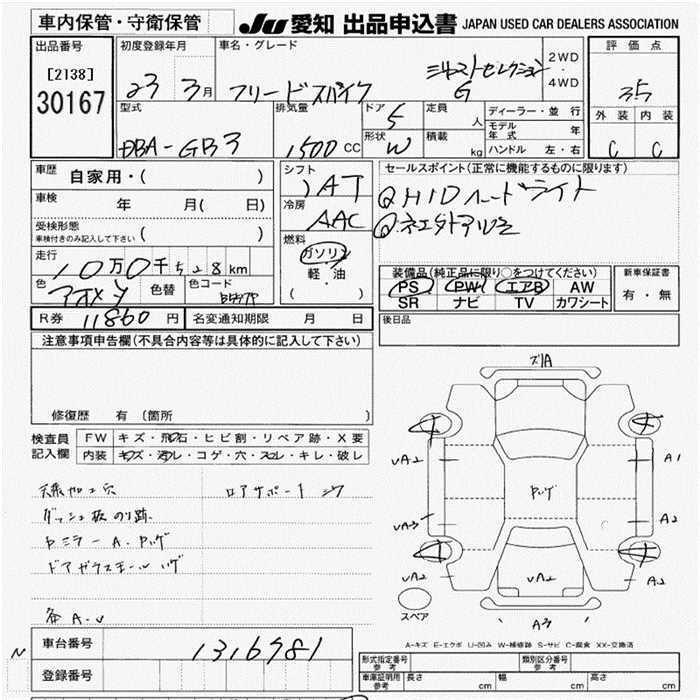 車内保管・守衛保管
JU 愛知 出品申込書 JAPAN USED CAR DEALERS ASSOCIATION
出品番号
[2138]
30167
初度登録年月
23 3月
車名・グレード
フリードスパイク
G
2WD
・
4WD
評価点
3.5
外装 内装
C C
型式
DBA-GB3
排気量
1500 CC
ドア
5
形状
W
定員
人
積載
kg
ディーラー・並行
モデル年式 年
ハンドル 左・右
車歴
自家用・( )
車検
年 月( 日)
受検形態
車検付きのみ記入して下さい ( )
走行
10万0千528km
色
色替
色コード
シフト
AT
冷房
AAC
燃料
ガソリン
軽・油
( ・ )
セールスポイント(正常に機能するものに限ります)
HIDヘッドライト
装備品(純正品に限り○をつけてください)
PS PW エアB AW
SR ナビ TV カワシート
新車保証書
有・無
R券 11860円 名変通知期限 月 日
後日品
注意事項申告欄(不具合内容等は具体的に記入して下さい)
修復歴 有(箇所 )
検査員
記入欄
FW キズ・飛石・ヒビ割・リペア跡・X要
内装 キズ・汚レ・コゲ・穴・スレ・キレ・破レ
天張加工穴
ダッシュ板のり跡
ズリA
UA2
A1
UA3
A2
UA2
UA2
A2
スペア
A3
A-キズ E-エクボ U-凹み W-補修跡 S-サビ C-腐食 XX-交換済
車台番号
1316981
登録番号
N
形式指定番号
参考
類別区分番号
参考
車庫証明用
参考
長さ cm 幅 cm 高さ cm